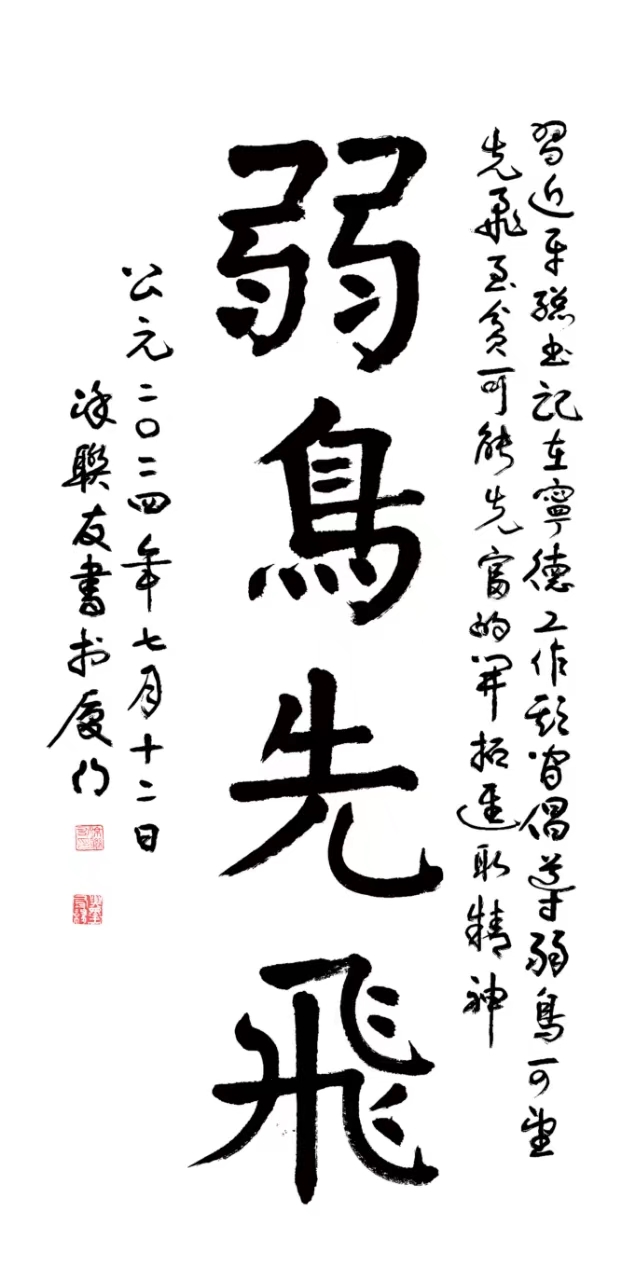 習近平總书記在寧德工作期间倡導弱鳥可望
先飛至貧可能先富的開拓進取精神
弱鳥先飛
公元二〇二四年七月十二日
涂聯友書於廈门